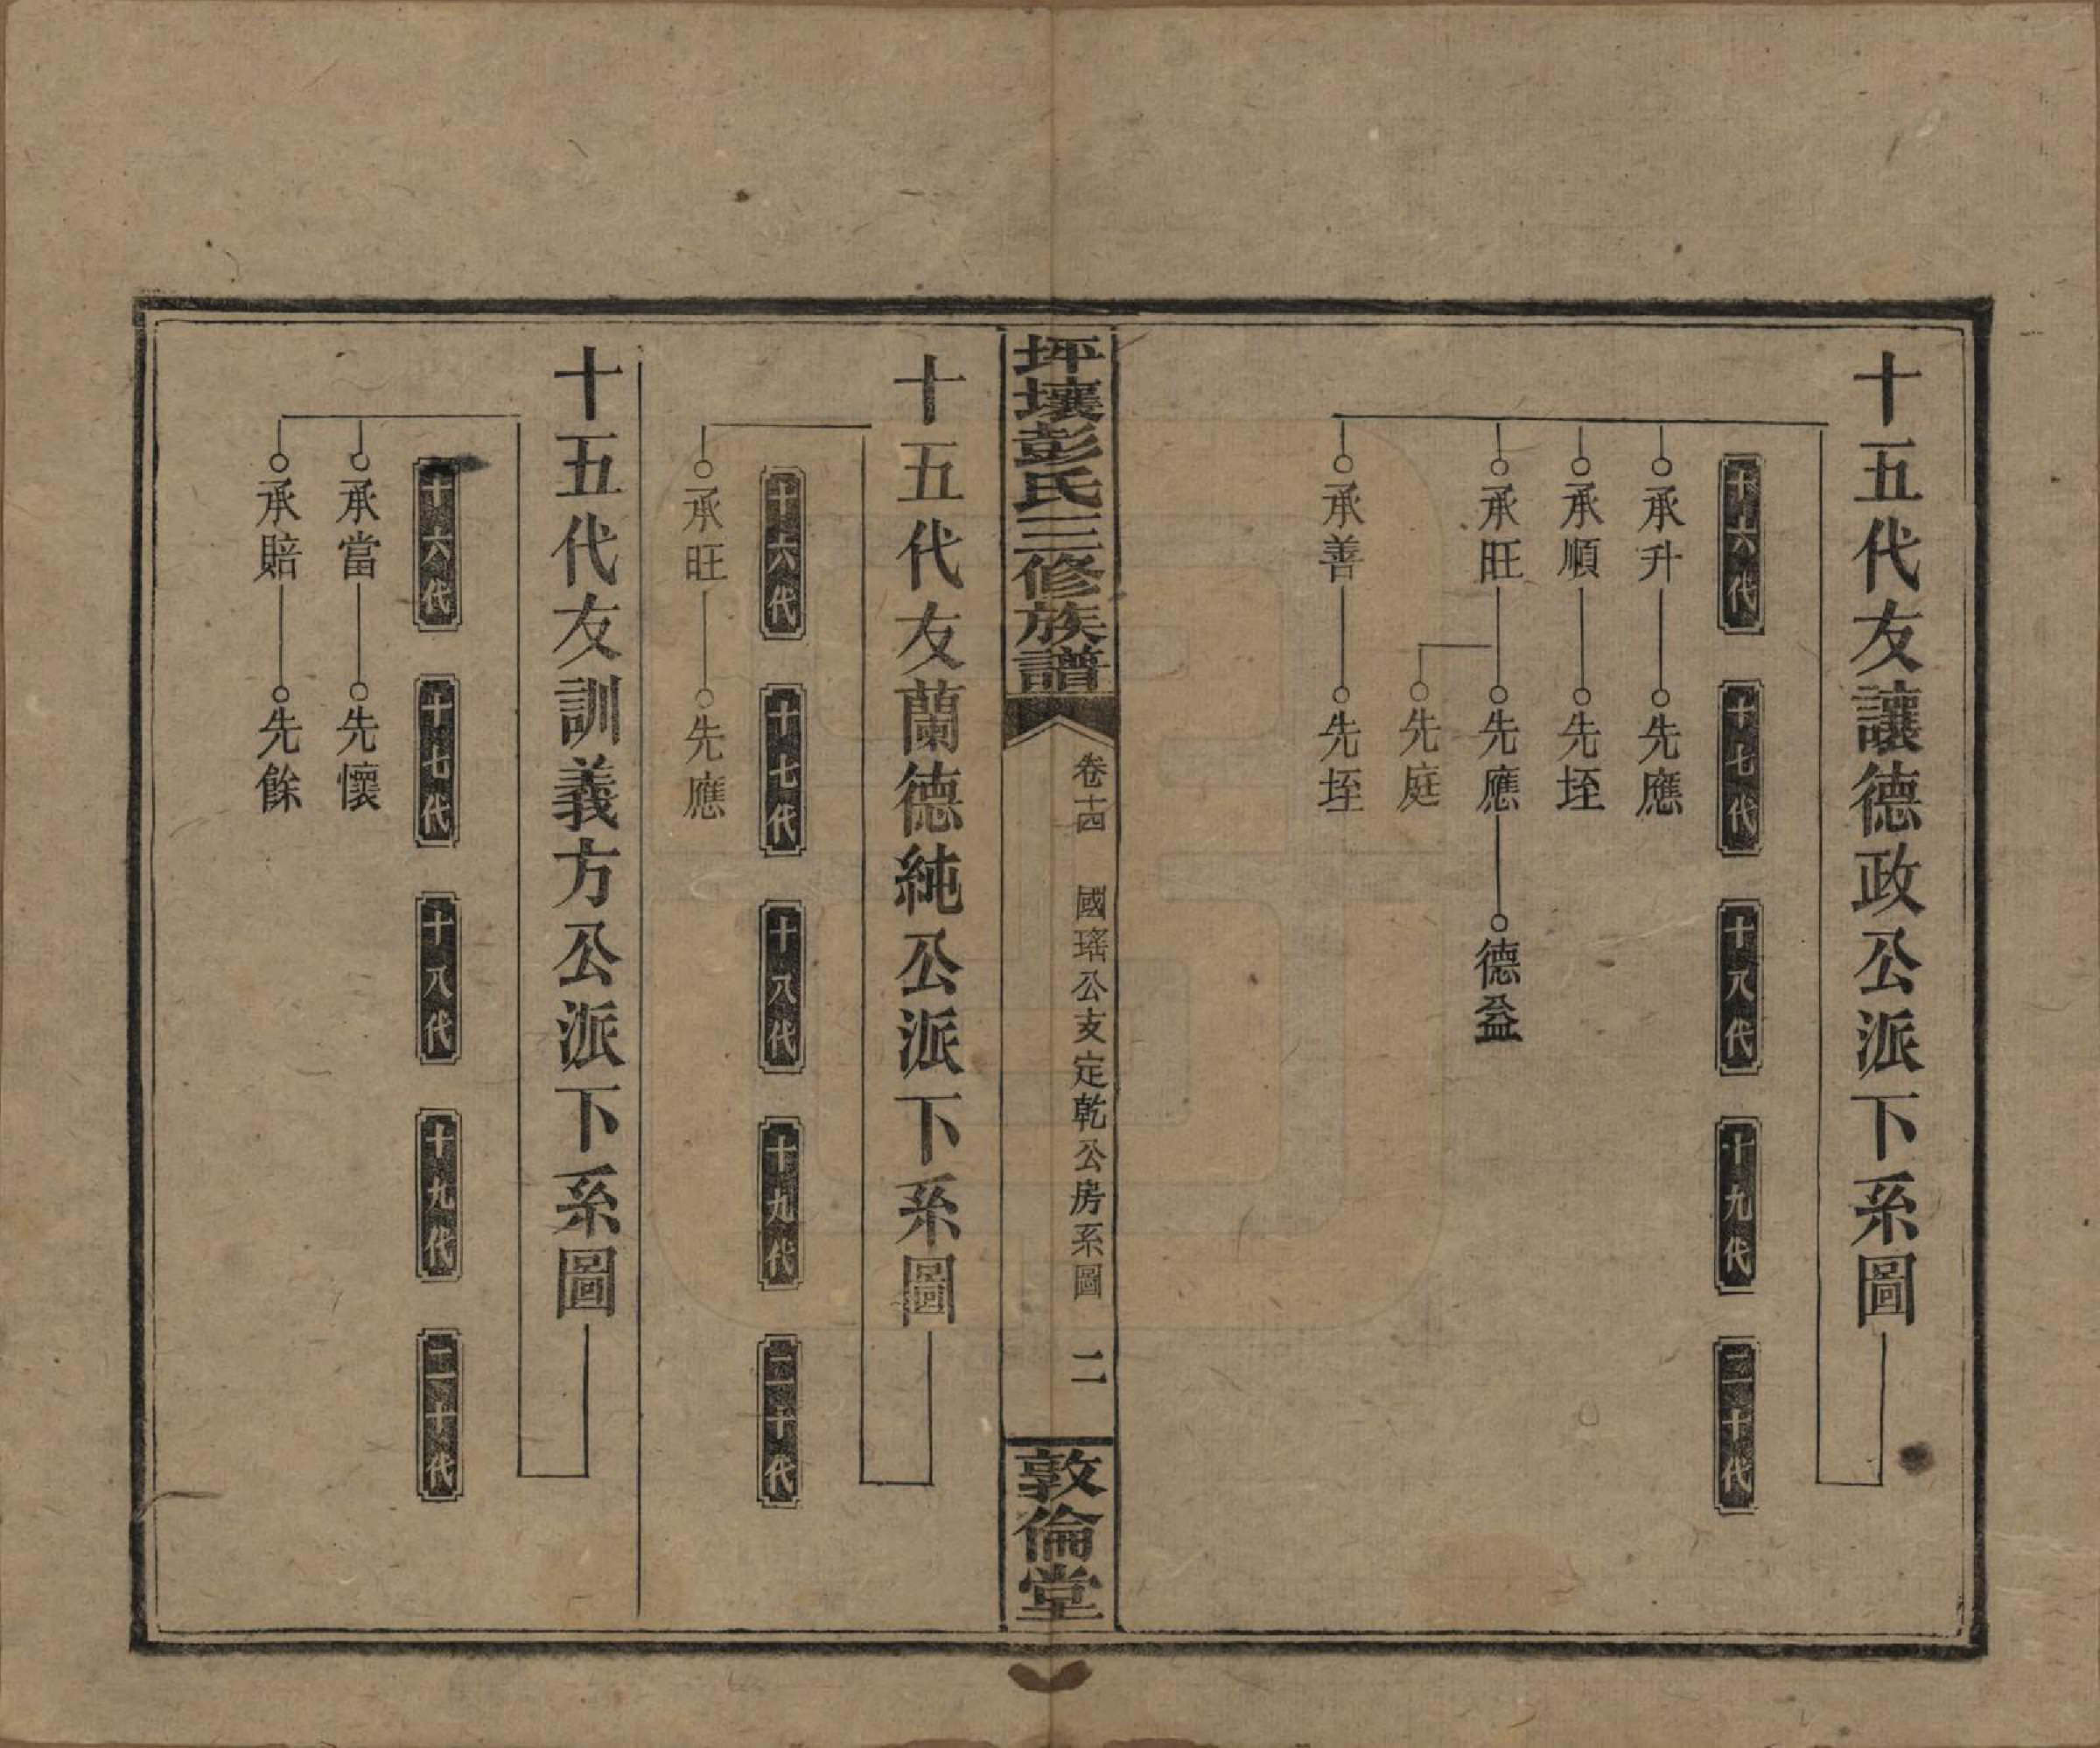 十五代友讓德政公派下系圖
十六代 十七代 十八代 十九代 二十代
承升 先應
承順 先垤
承旺 先應 德益
先庭
承善 先垤
坪壤彭氏三修族譜
卷十四 國瑤公支定乾公房系圖 二
敦倫堂
十五代友蘭德純公派下系圖
十六代 十七代 十八代 十九代 二十代
承旺 先應
十五代友訓義方公派下系圖
十六代 十七代 十八代 十九代 二十代
承當 先懷
承賠 先餘